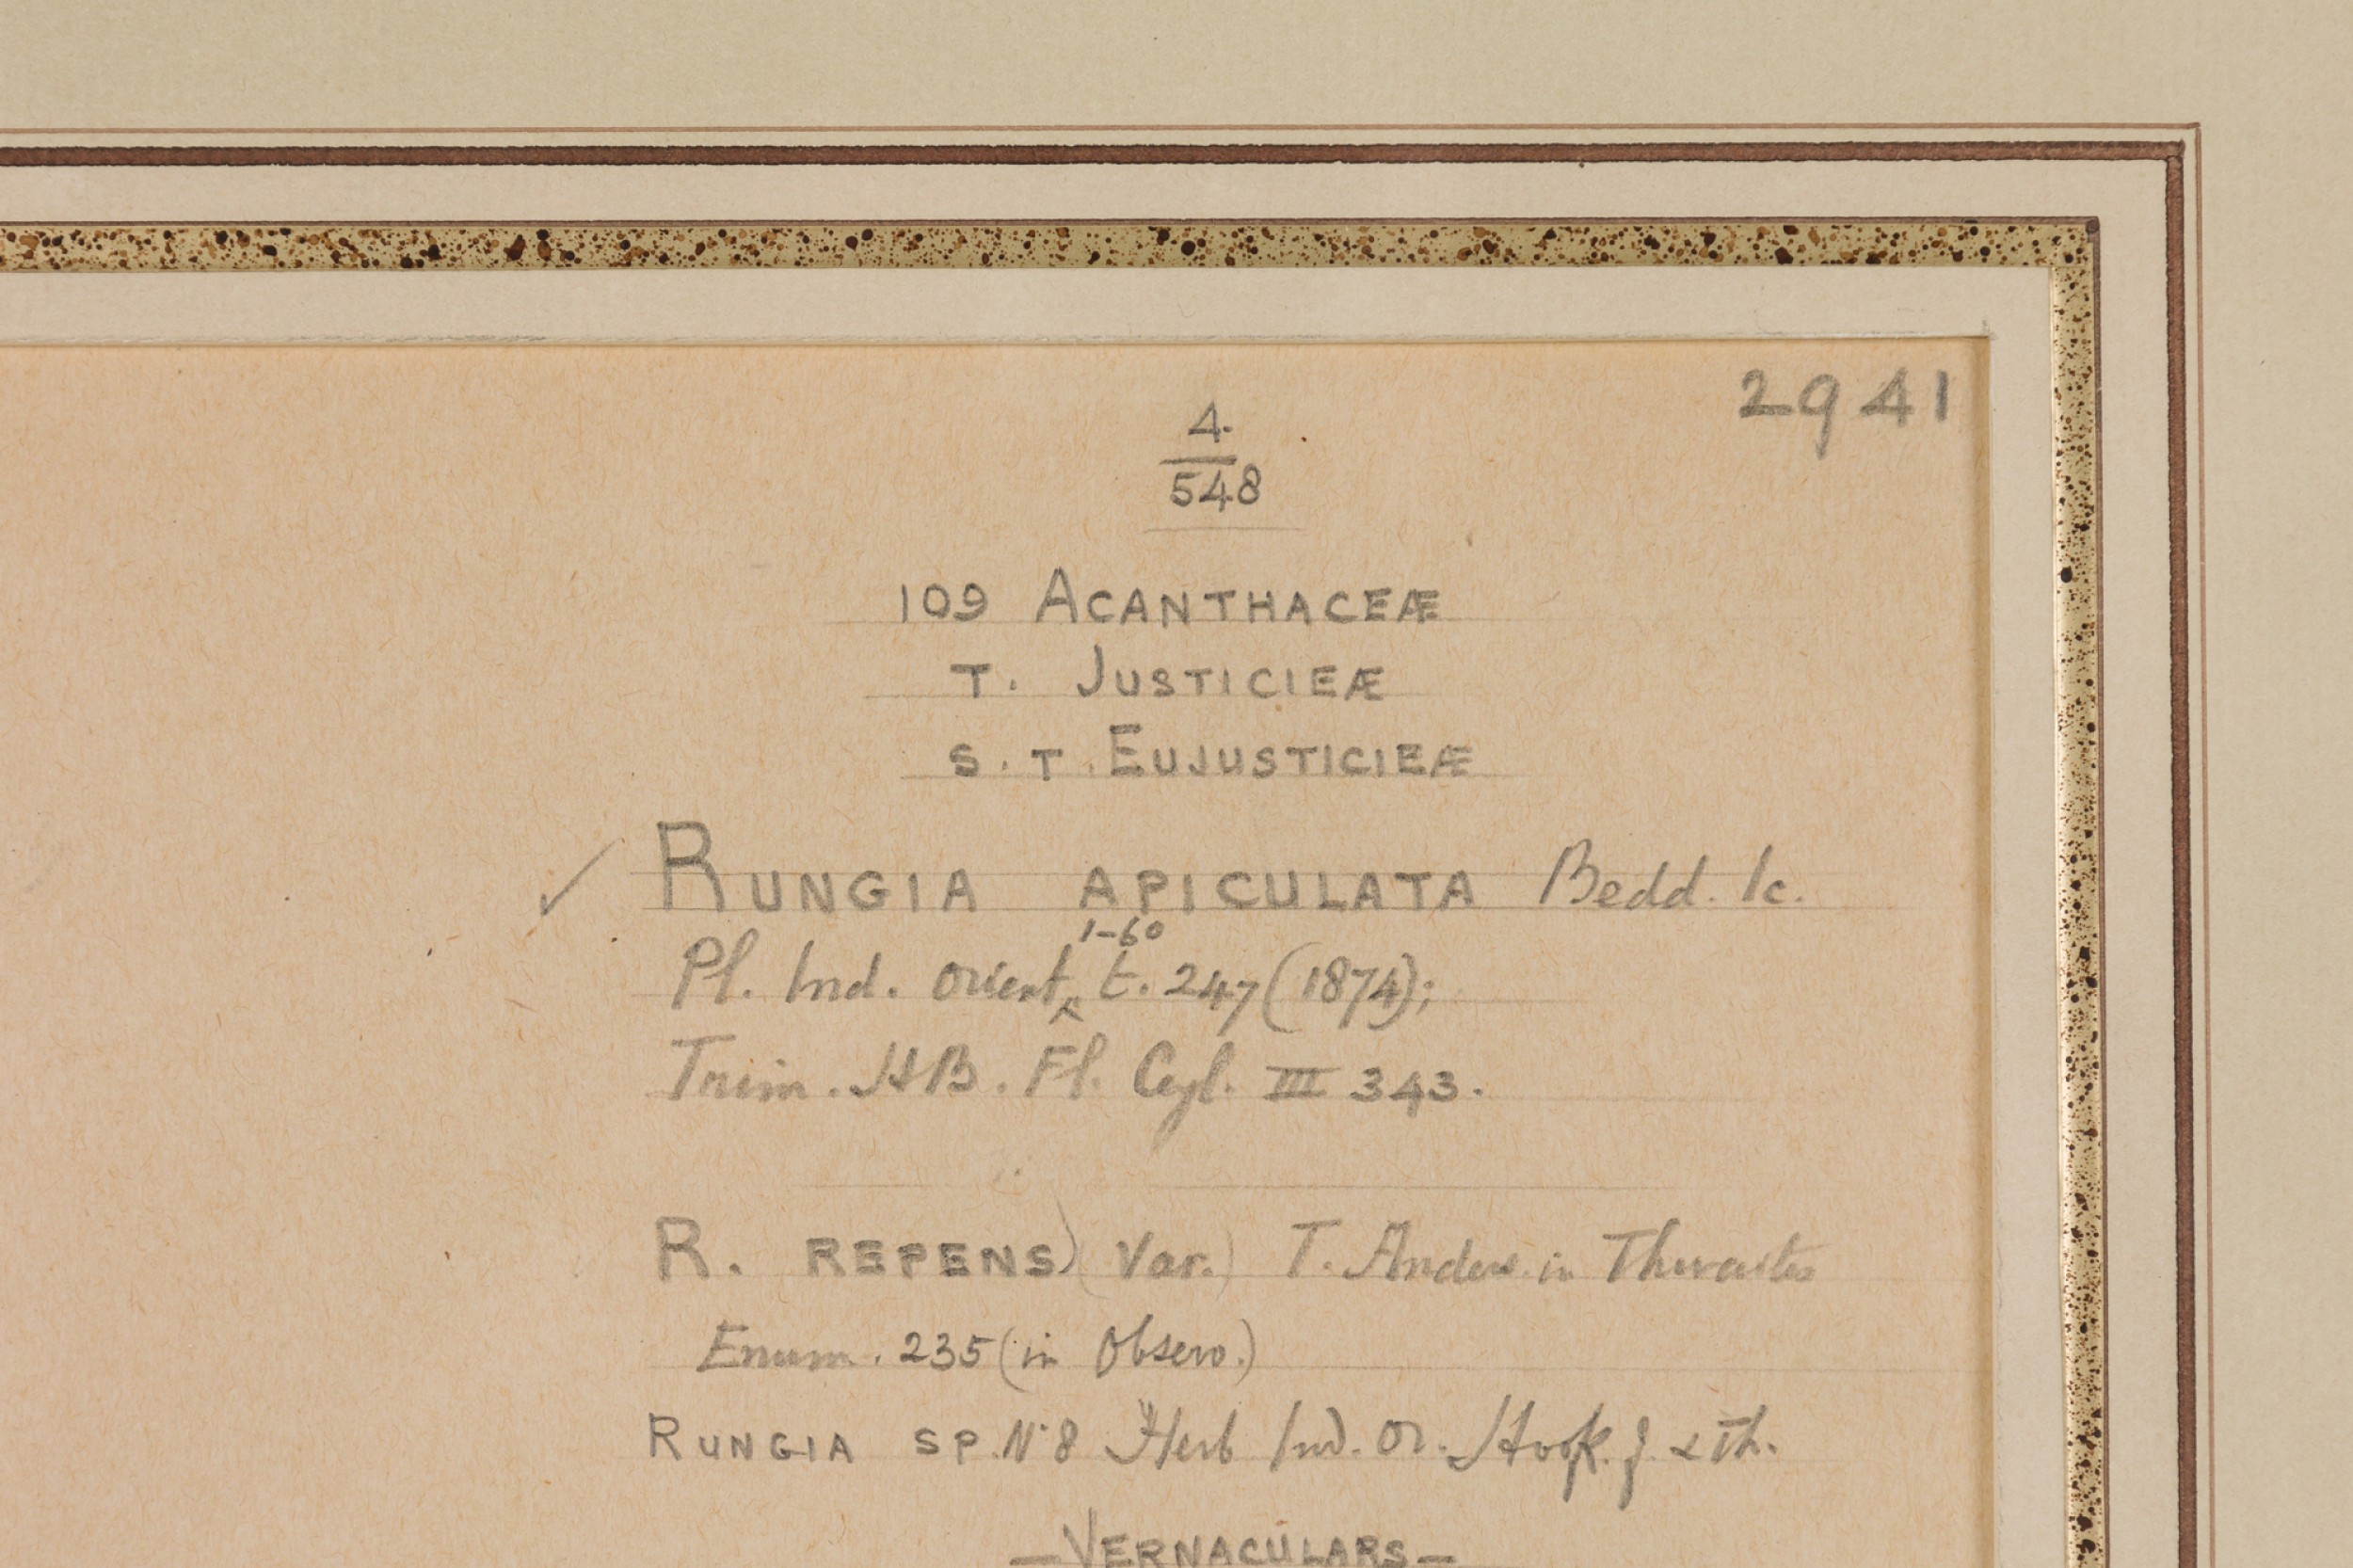 2941
4.
548
109 ACANTHACEÆ
T. JUSTICIEÆ
S. T. EUJUSTICIEÆ
✓ RUNGIA APICULATA Bedd. Ic.
1-60
Pl. Ind. Orient‸ t. 247 (1874);
Trim. HB. Fl. Ceyl. III 343.
R. REPENS) (Var.) T. Anders. in Thwaites
Enum. 235 (in Observ.)
RUNGIA SP. Nº 8 Herb Ind. Or. Hook. f. & Th.
—VERNACULARS—